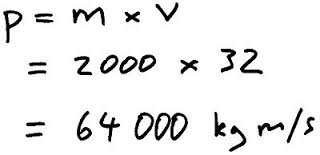 p = m x v
= 2000 x 32
= 64 000 kg m/s